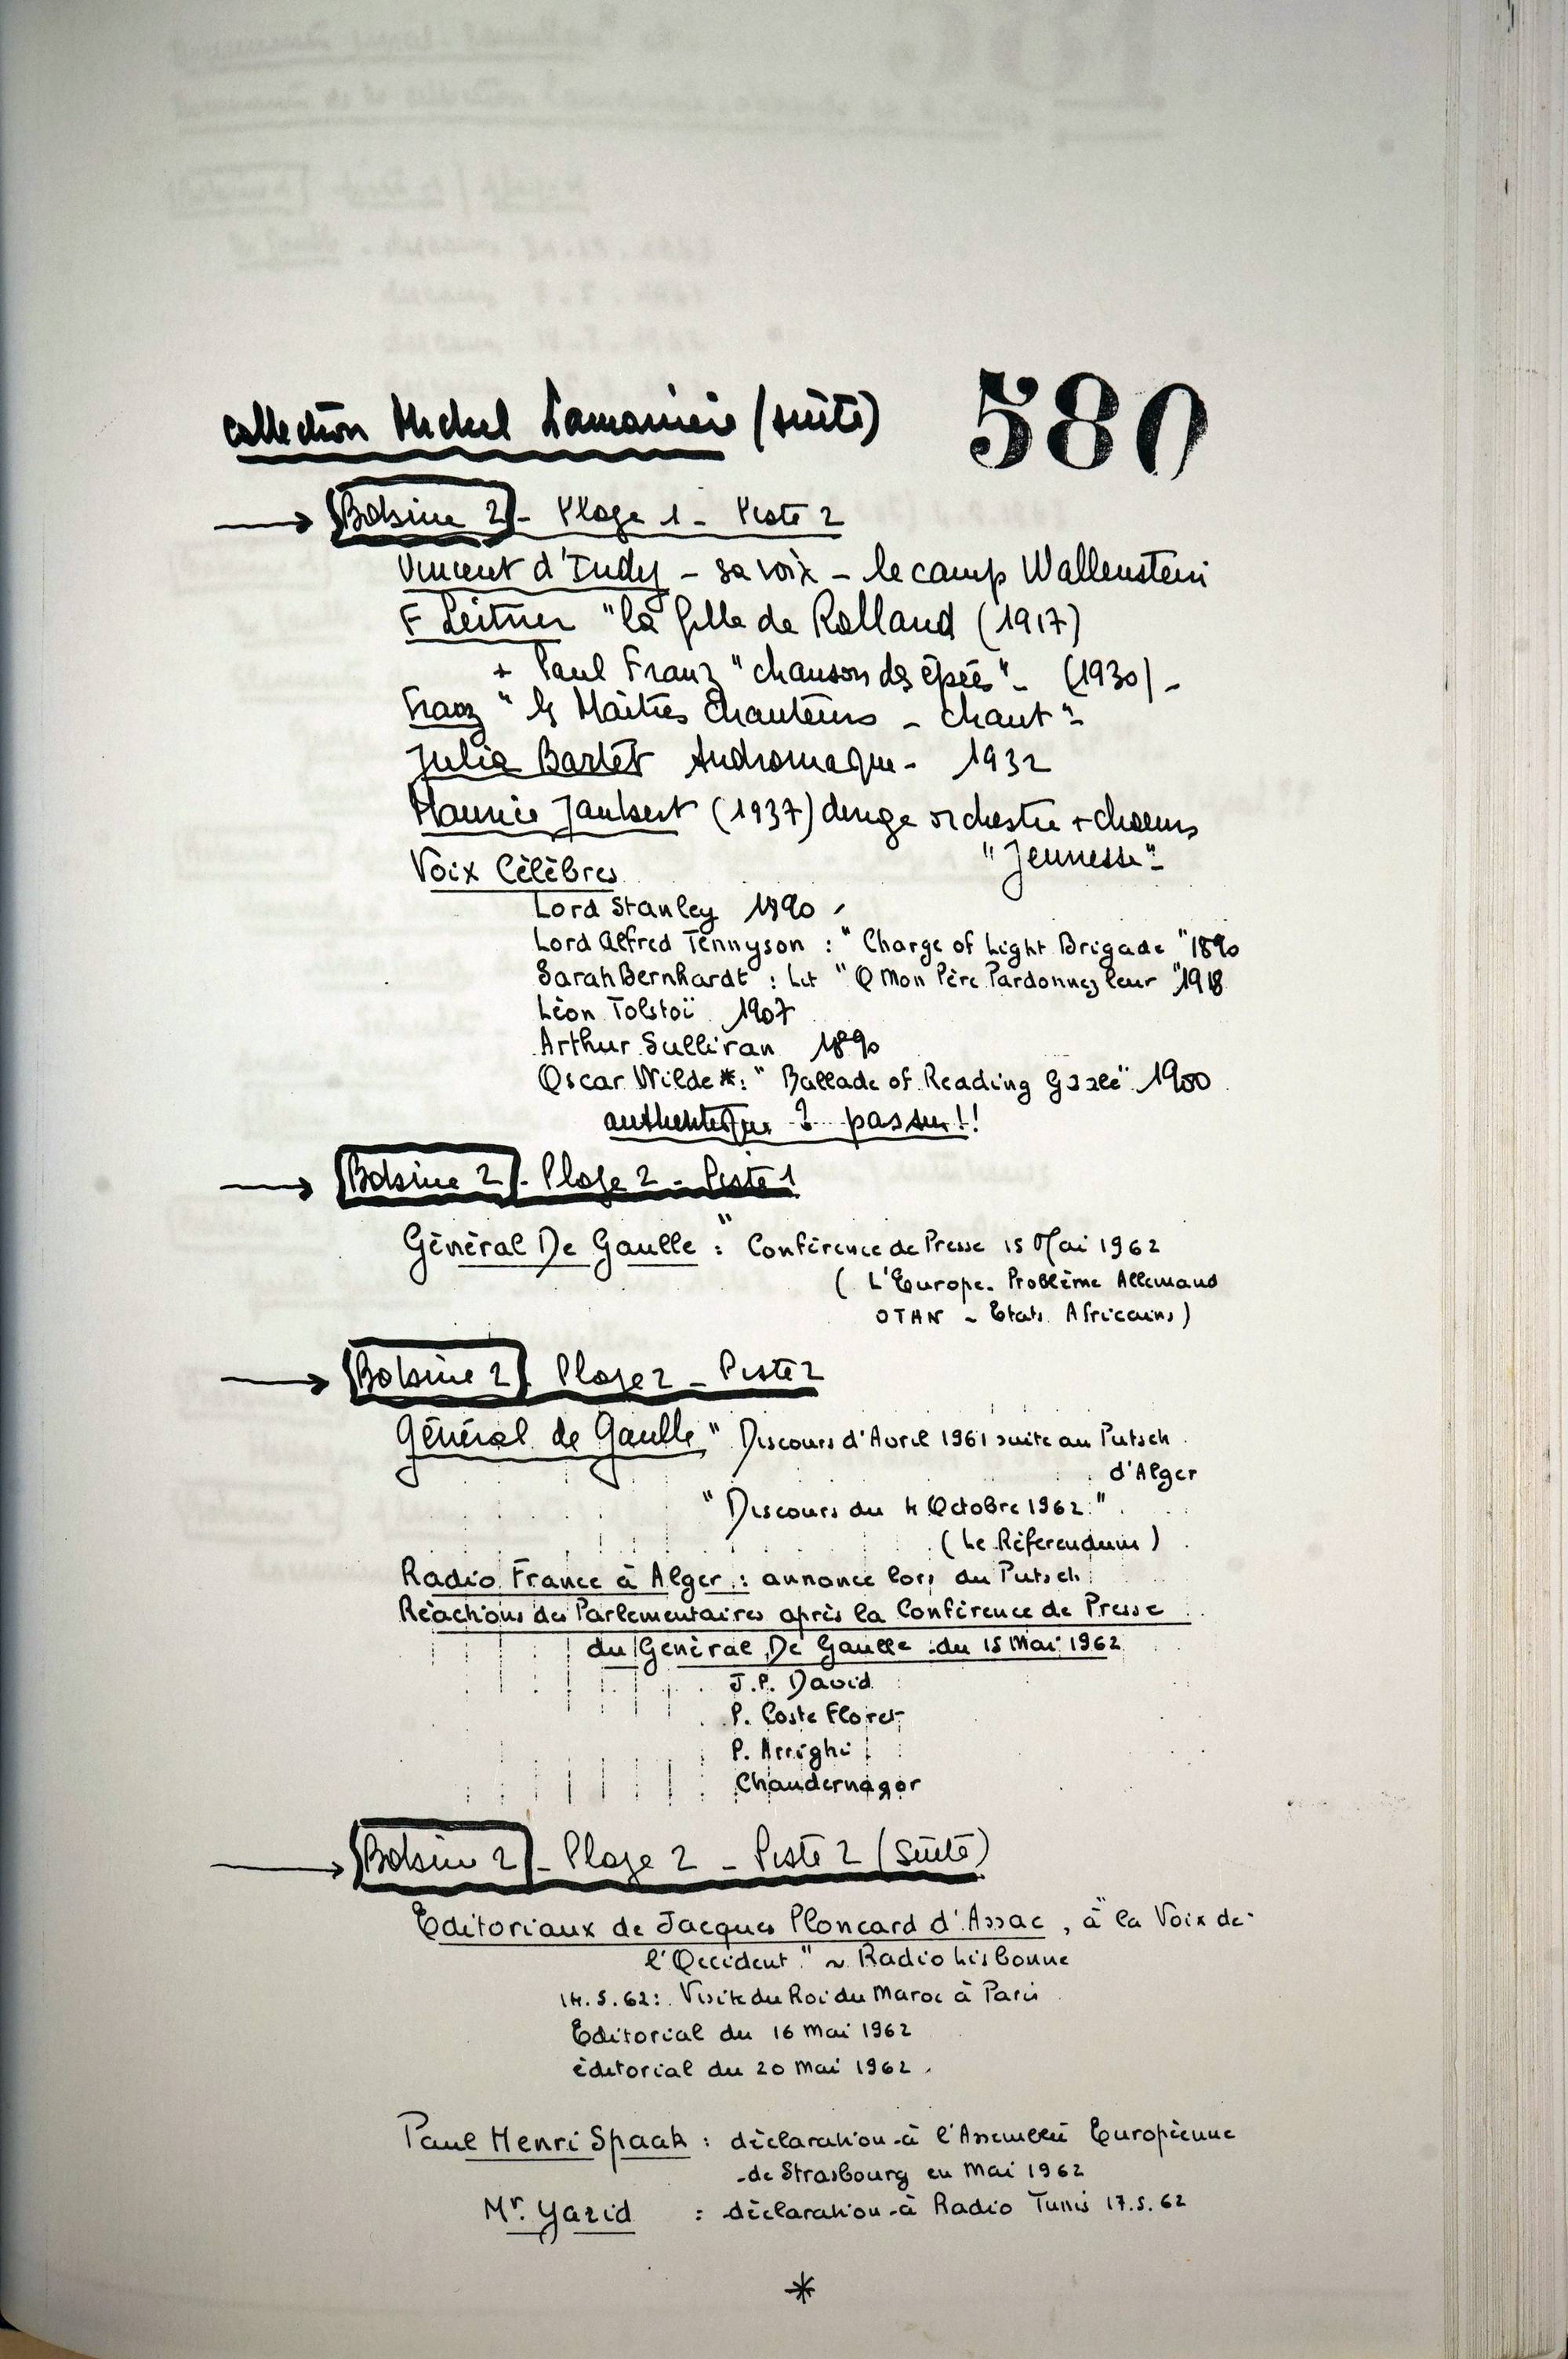 collection Michel Lamoinière (suite) 580
→ Bobine 2 - Plage 1 - Piste 2
Vincent d'Indy - sa voix - le camp Wallenstein
F Leitner "la fille de Rolland (1917)
+ Paul Franz "chanson des épées" - (1930) -
Franz "les Maîtres Chanteurs - chant" -
Julia Bartet Andromaque - 1932
Maurice Jaubert (1937) dirige orchestre + chœurs
"Jeunesse" -
Voix Célèbres
Lord Stanley 1890
Lord Alfred Tennyson : "Charge of Light Brigade" 1890
Sarah Bernhardt : Lit "O Mon Père Pardonnez leur" 1918
Léon Tolstoï 1907
Arthur Sullivan 1890
Oscar Wilde * : "Ballade of Reading Gaole" 1900
authentique ? pas sur !!
→ Bobine 2 - Plage 2 - Piste 1
Général De Gaulle : "Conférence de Presse 15 Mai 1962
( L'Europe - Problème Allemand
OTAN - Etats Africains )
→ Bobine 2 Plage 2 - Piste 2
Général de Gaulle "Discours d'Avril 1961 suite au Putsch
d'Alger
"Discours du 4 Octobre 1962"
( Le Référendum )
Radio France à Alger : annonce lors du Putsch
Réactions des Parlementaires après la Conférence de Presse
du Général De Gaulle du 15 Mai 1962
J.P. David
P. Coste Floret
P. Arrighi
Chandernagor
→ Bobine 2 - Plage 2 - Piste 2 (suite)
Editoriaux de Jacques Ploncard d'Assac, à "la Voix de
l'Occident" ~ Radio Lisbonne
14.5.62 : Visite du Roi du Maroc à Paris
Editorial du 16 Mai 1962
éditorial du 20 Mai 1962.
Paul Henri Spaak : déclaration à l'Assemblée Européenne
de Strasbourg en Mai 1962
Mr. Yazid : déclaration à Radio Tunis 17.5.62
*